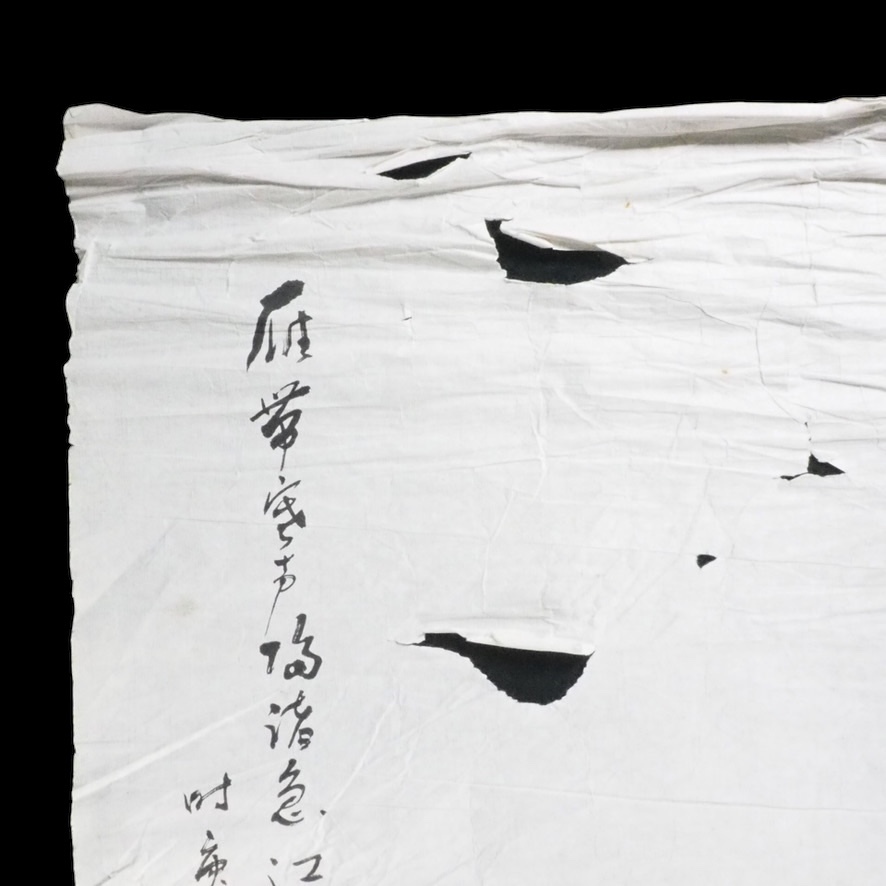 雁带寒声隔渚急江
时庚